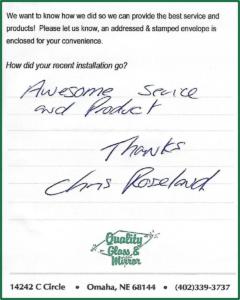 We want to know how we did so we can provide the best service and
products! Please let us know, an addressed & stamped envelope is
enclosed for your convenience.
How did your recent installation go?
Awesome Service
and Product
Thanks
Chris Roseland
Quality
Glass &
Mirror
14242 C Circle • Omaha, NE 68144 • (402)339-3737